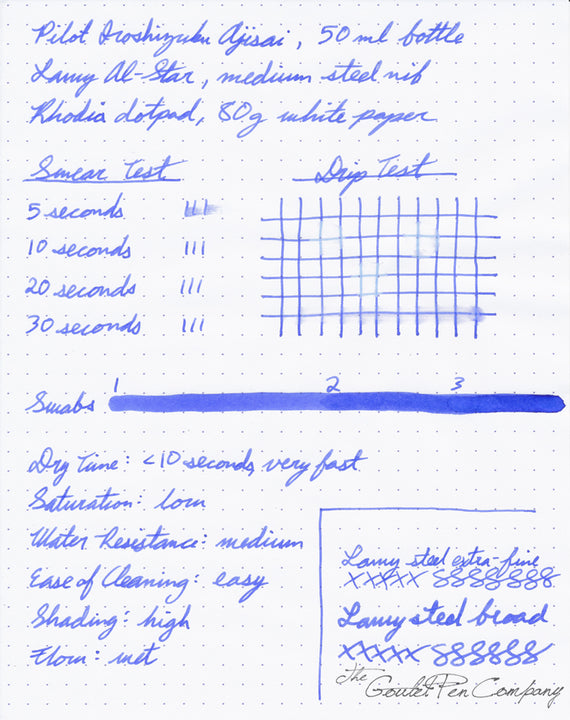 Pilot Iroshizuku Ajisai, 50 ml bottle
Lamy Al-Star, medium steel nib
Rhodia dotpad, 80g white paper
Smear Test
Drip Test
5 seconds III
10 seconds III
20 seconds III
30 seconds III
Swabs 1 2 3
Dry Time: <10 seconds, very fast
Saturation: low
Water Resistance: medium
Ease of Cleaning: easy
Shading: high
Flow: wet
Lamy steel extra-fine
xxxxx 8888888
Lamy steel broad
xxxxx 888888
The Goulet Pen Company